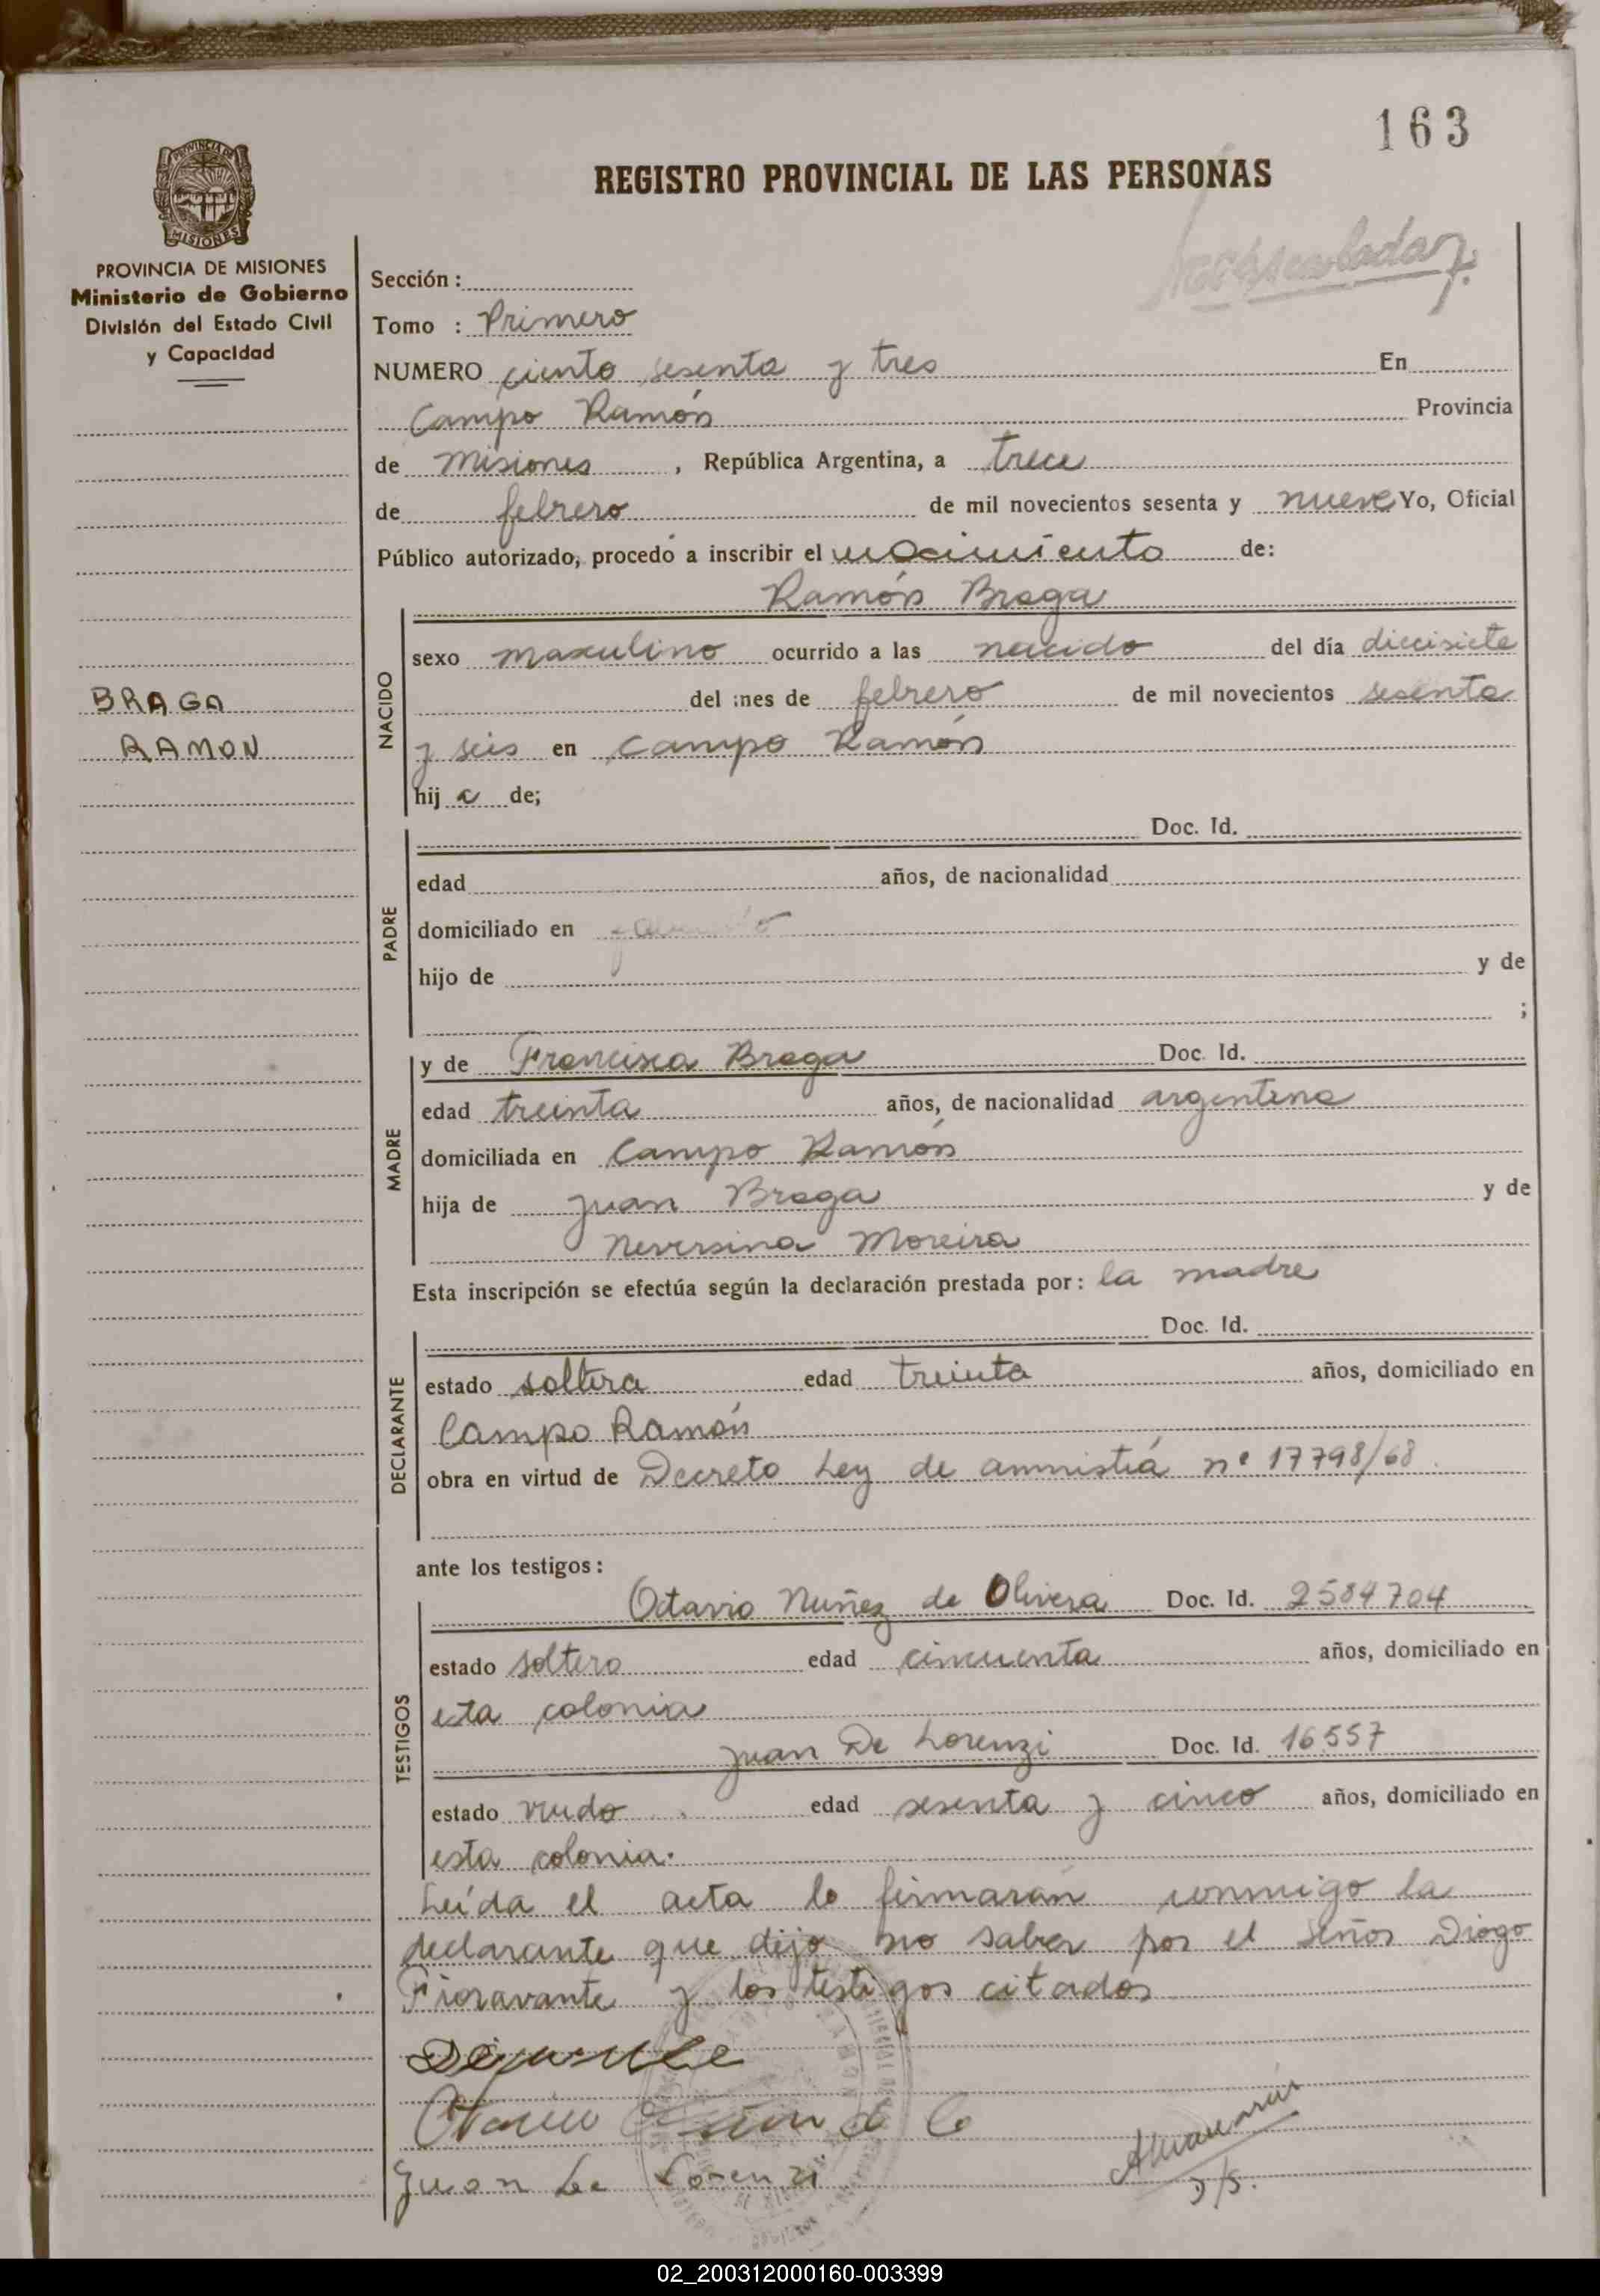 163
REGISTRO PROVINCIAL DE LAS PERSONAS
PROVINCIA DE
MISIONES
PROVINCIA DE MISIONES
Ministerio de Gobierno
División del Estado Civil
y Capacidad
BRAGA
RAMON
Sección :
Tomo : Primero
NUMERO ciento sesenta y tres En
Campo Ramón Provincia
de Misiones , República Argentina, a trece
de febrero de mil novecientos sesenta y nueve Yo, Oficial
Público autorizado, procedo a inscribir el nacimiento de:
Ramón Braga
NACIDO
sexo masculino ocurrido a las nacido del día diecisiete
del mes de febrero de mil novecientos sesenta
y seis en Campo Ramón
hij o de;
PADRE
Doc. Id.
edad años, de nacionalidad
domiciliado en
hijo de y de
;
MADRE
y de Francisca Braga Doc. Id.
edad treinta años, de nacionalidad argentina
domiciliada en Campo Ramón
hija de Juan Braga y de
Neversina Moreira
Esta inscripción se efectúa según la declaración prestada por: la madre
DECLARANTE
Doc. Id.
estado soltera edad treinta años, domiciliado en
Campo Ramón
obra en virtud de Decreto Ley de amnistía nº 17798/68.
ante los testigos:
TESTIGOS
Octavio Nuñez de Olivera Doc. Id. 2584704
estado soltero edad cincuenta años, domiciliado en
esta colonia
Juan De Lorenzi Doc. Id. 16557
estado viudo edad sesenta y cinco años, domiciliado en
esta colonia.
Leída el acta la firmarán conmigo la
declarante que dijo no saber por el señor Diogo
Fioravante y los testigos citados
Juan De Lorenzi
02_200312000160-003399